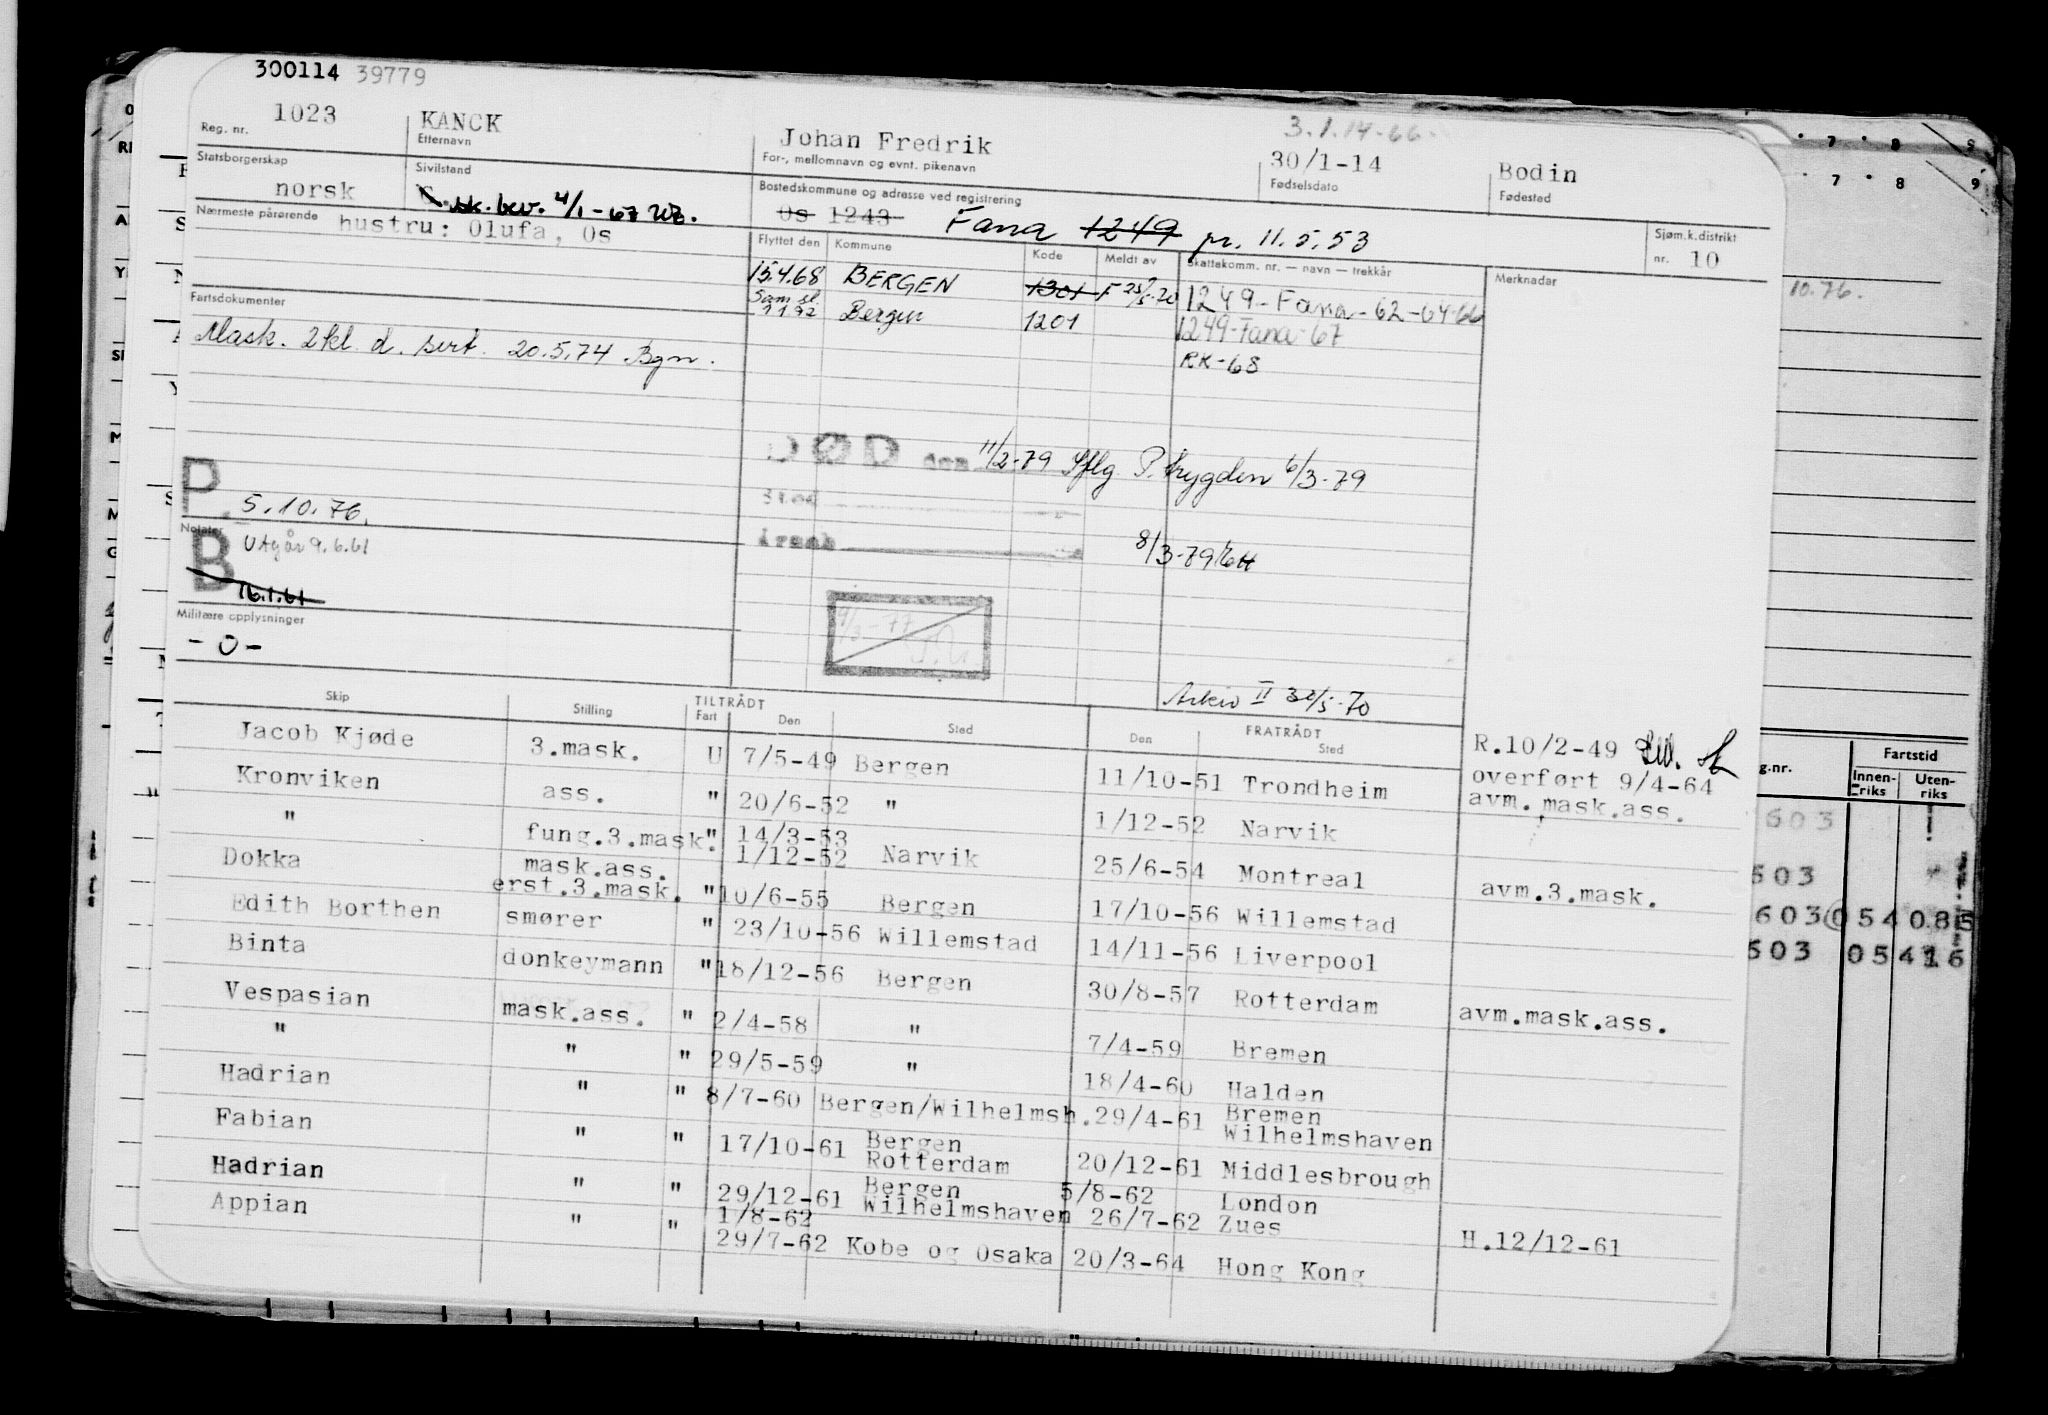 300114 39779
Reg. nr. 1023
KANCK
Etternavn
Johan Fredrik
For-, mellomnavn og evnt. pikenavn
3.1.14-66.
30/1-14
Fødselsdato
Bodin
Fødested
Statsborgerskap
norsk
Sivilstand
sk. bev. 4/1-67
Bostedskommune og adresse ved registrering
Os 1243 Fana 1249 pr. 11.5.53
Sjøm.k.distrikt
nr. 10
Nærmeste pårørende
hustru: Olufa, Os
Flyttet den Kommune Kode Meldt av Skattekomm. nr. — navn — trekkår Merknader
15.4.68 BERGEN 1301 F 25/5-70 1249-Fana-62-64-66
Sam.sl. 1.1.72 Bergen 1201 1249-Fana-67
RK-68
Fartsdokumenter
Mask. 2kl. d. sert. 20.5.74 Bgn.
DØD den 11/2-79 Sflg. P.trygden 6/3-79
Sted
Årsak
8/3-79
P. 5.10.76.
Notater
B Utgår 9.6.61
16.1.61
9/3-77
Militære opplysninger
-0-
Arkiv II
Skip Stilling TILTRÅDT Fart Den Sted FRATRÅDT Den Sted
R.10/2-49
Jacob Kjøde 3.mask. U 7/5-49 Bergen 11/10-51 Trondheim overført 9/4-64
avm. mask.ass.
Kronviken ass. " 20/6-52 " 1/12-52 Narvik
" fung.3.mask. " 14/3-53
1/12-52 Narvik 25/6-54 Montreal avm.3.mask.
Dokka mask.ass.
erst.3.mask. " 10/6-55 Bergen 17/10-56 Willemstad
Edith Borthen smører " 23/10-56 Willemstad 14/11-56 Liverpool
Binta donkeymann " 18/12-56 Bergen 30/8-57 Rotterdam avm.mask.ass.
Vespasian mask.ass. " 2/4-58 " 7/4-59 Bremen
" " " 29/5-59 " 18/4-60 Halden
Hadrian " " 8/7-60 Bergen/Wilhelmsh. 29/4-61 Bremen
Wilhelmshaven
Fabian " " 17/10-61 Bergen
Rotterdam 20/12-61 Middlesbrough
Hadrian " " 29/12-61 Bergen
Wilhelmshaven 5/8-62 London
Appian " " 1/8-62 26/7-62 Zues H.12/12-61
29/7-62 Kobe og Osaka 20/3-64 Hong Kong
7 8 9
7 8 9
10.76.
g.nr. Fartstid
Innenriks Utenriks
603
603
603 054 085
603 054 16